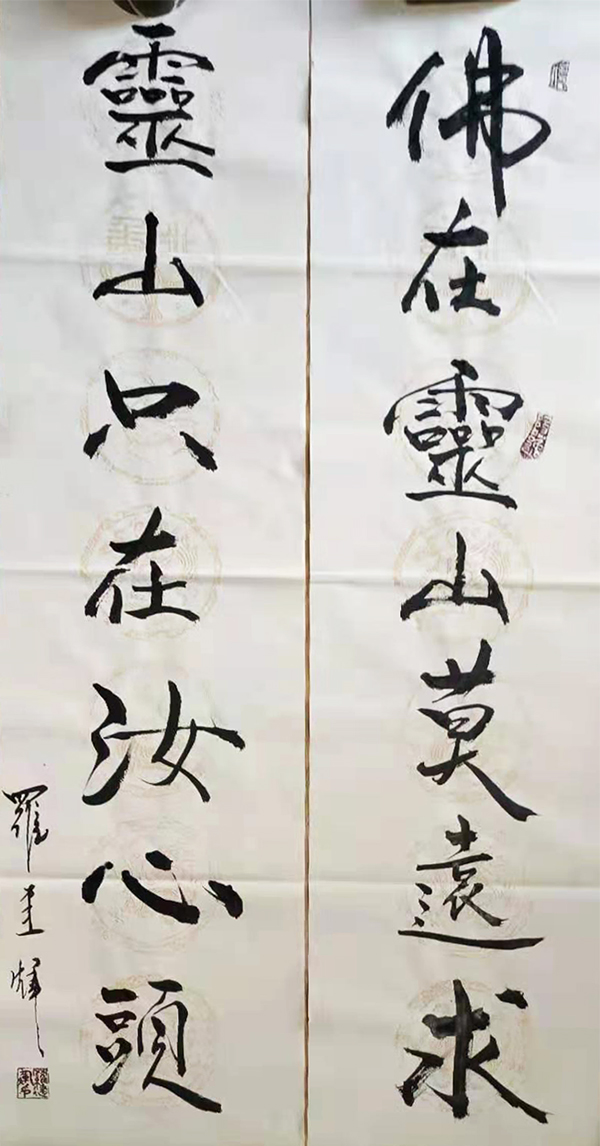 佛在靈山莫遠求
靈山只在汝心頭
羅建輝